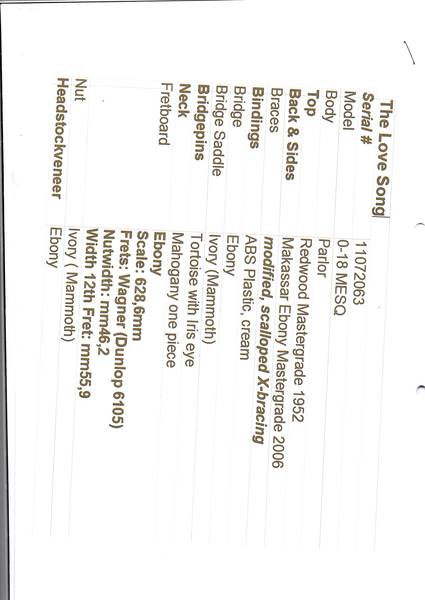 The Love Song
Serial # 11072063
Model 0-18 MESQ
Body Parlor
Top Redwood Mastergrade 1952
Back & Sides Makassar Ebony Mastergrade 2006
Braces modified, scalloped X-bracing
Bindings ABS Plastic, cream
Bridge Ebony
Bridge Saddle Ivory (Mammoth)
Bridgepins Tortoise with Iris eye
Neck Mahogany one piece
Fretboard Ebony
Scale: 628,6mm
Frets: Wagner (Dunlop 6105)
Nutwidth: mm46,2
Width 12th Fret: mm55,9
Nut Ivory ( Mammoth)
Headstockveneer Ebony